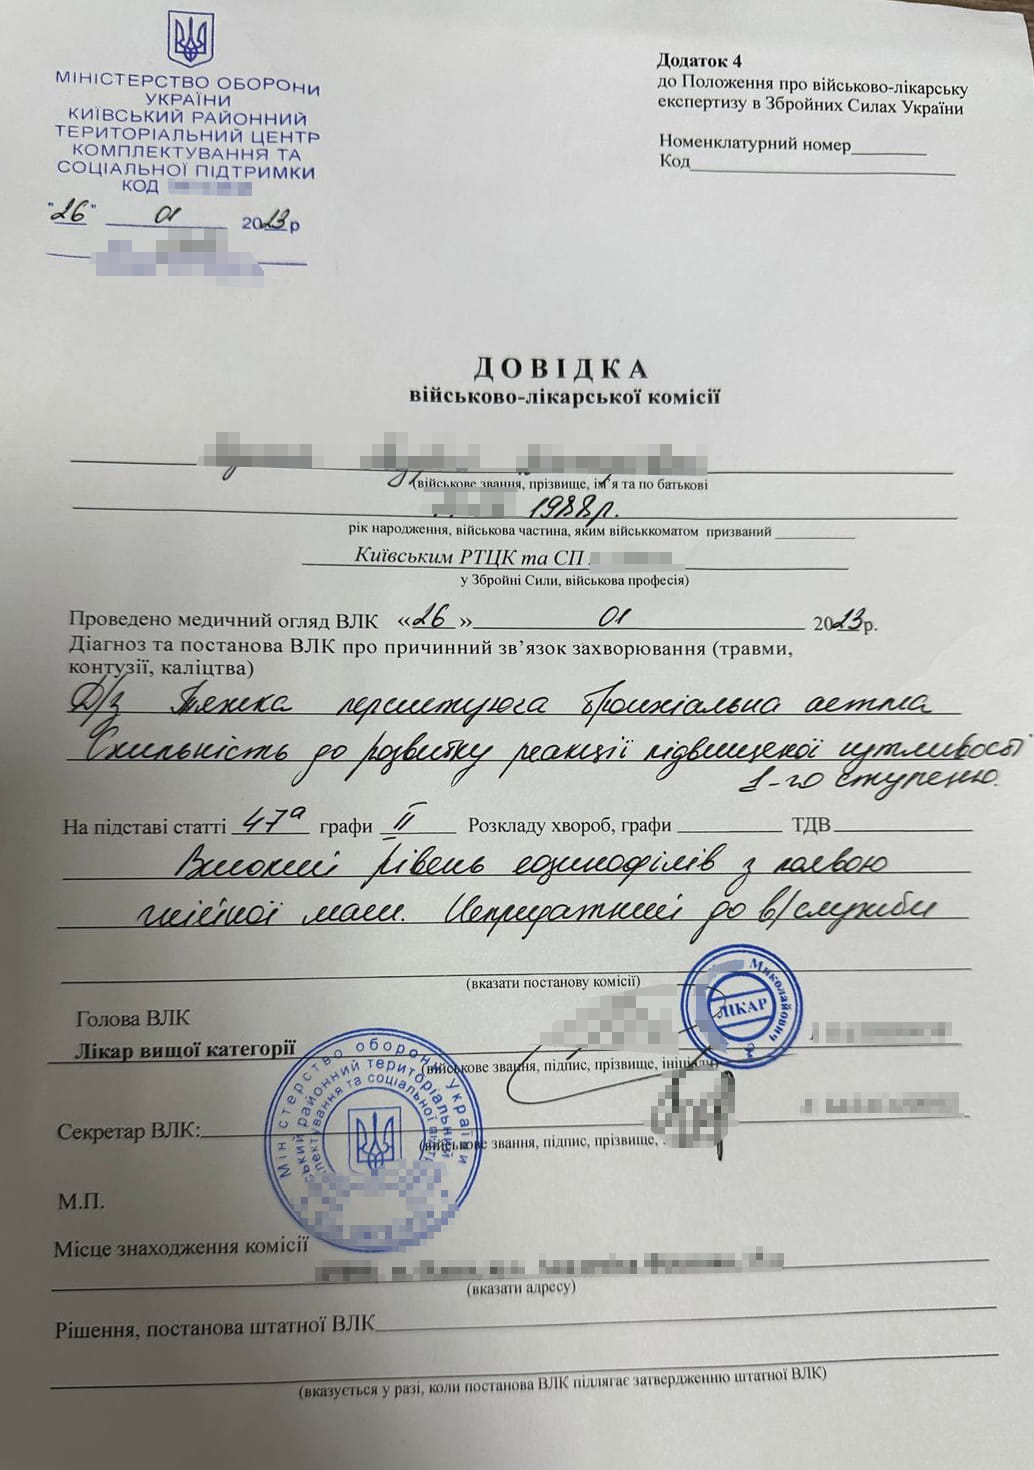 МІНІСТЕРСТВО ОБОРОНИ
УКРАЇНИ
КИЇВСЬКИЙ РАЙОННИЙ
ТЕРИТОРІАЛЬНИЙ ЦЕНТР
КОМПЛЕКТУВАННЯ ТА
СОЦІАЛЬНОЇ ПІДТРИМКИ
КОД
"26" 01 2023р
Додаток 4
до Положення про військово-лікарську
експертизу в Збройних Силах України
Номенклатурний номер
Код
ДОВІДКА
військово-лікарської комісії
(військове звання, прізвище, ім'я та по батькові
1988р.
рік народження, військова частина, яким військкоматом призваний
Київським РТЦК та СП
у Збройні Сили, військова професія)
Проведено медичний огляд ВЛК «26» 01 2023р.
Діагноз та постанова ВЛК про причинний зв'язок захворювання (травми,
контузії, каліцтва)
Д/з Тяжка персистуюча бронхіальна астма
Схильність до розвитку реакції підвищеної чутливості
1-го ступеню.
На підставі статті 47а графи II Розкладу хвороб, графи ТДВ
Високий рівень еозинофілів з появою
маси. Непридатний до в/служби
(вказати постанову комісії)
Голова ВЛК
Лікар вищої категорії
(військове звання, підпис, прізвище, ініціали)
Миколайович
ЛІКАР
Секретар ВЛК:
(військове звання, підпис, прізвище,
Міністерство оборони України
районний територіальний
та соціальної
М.П.
Місце знаходження комісії
(вказати адресу)
Рішення, постанова штатної ВЛК
(вказується у разі, коли постанова ВЛК підлягає затвердженню штатної ВЛК)